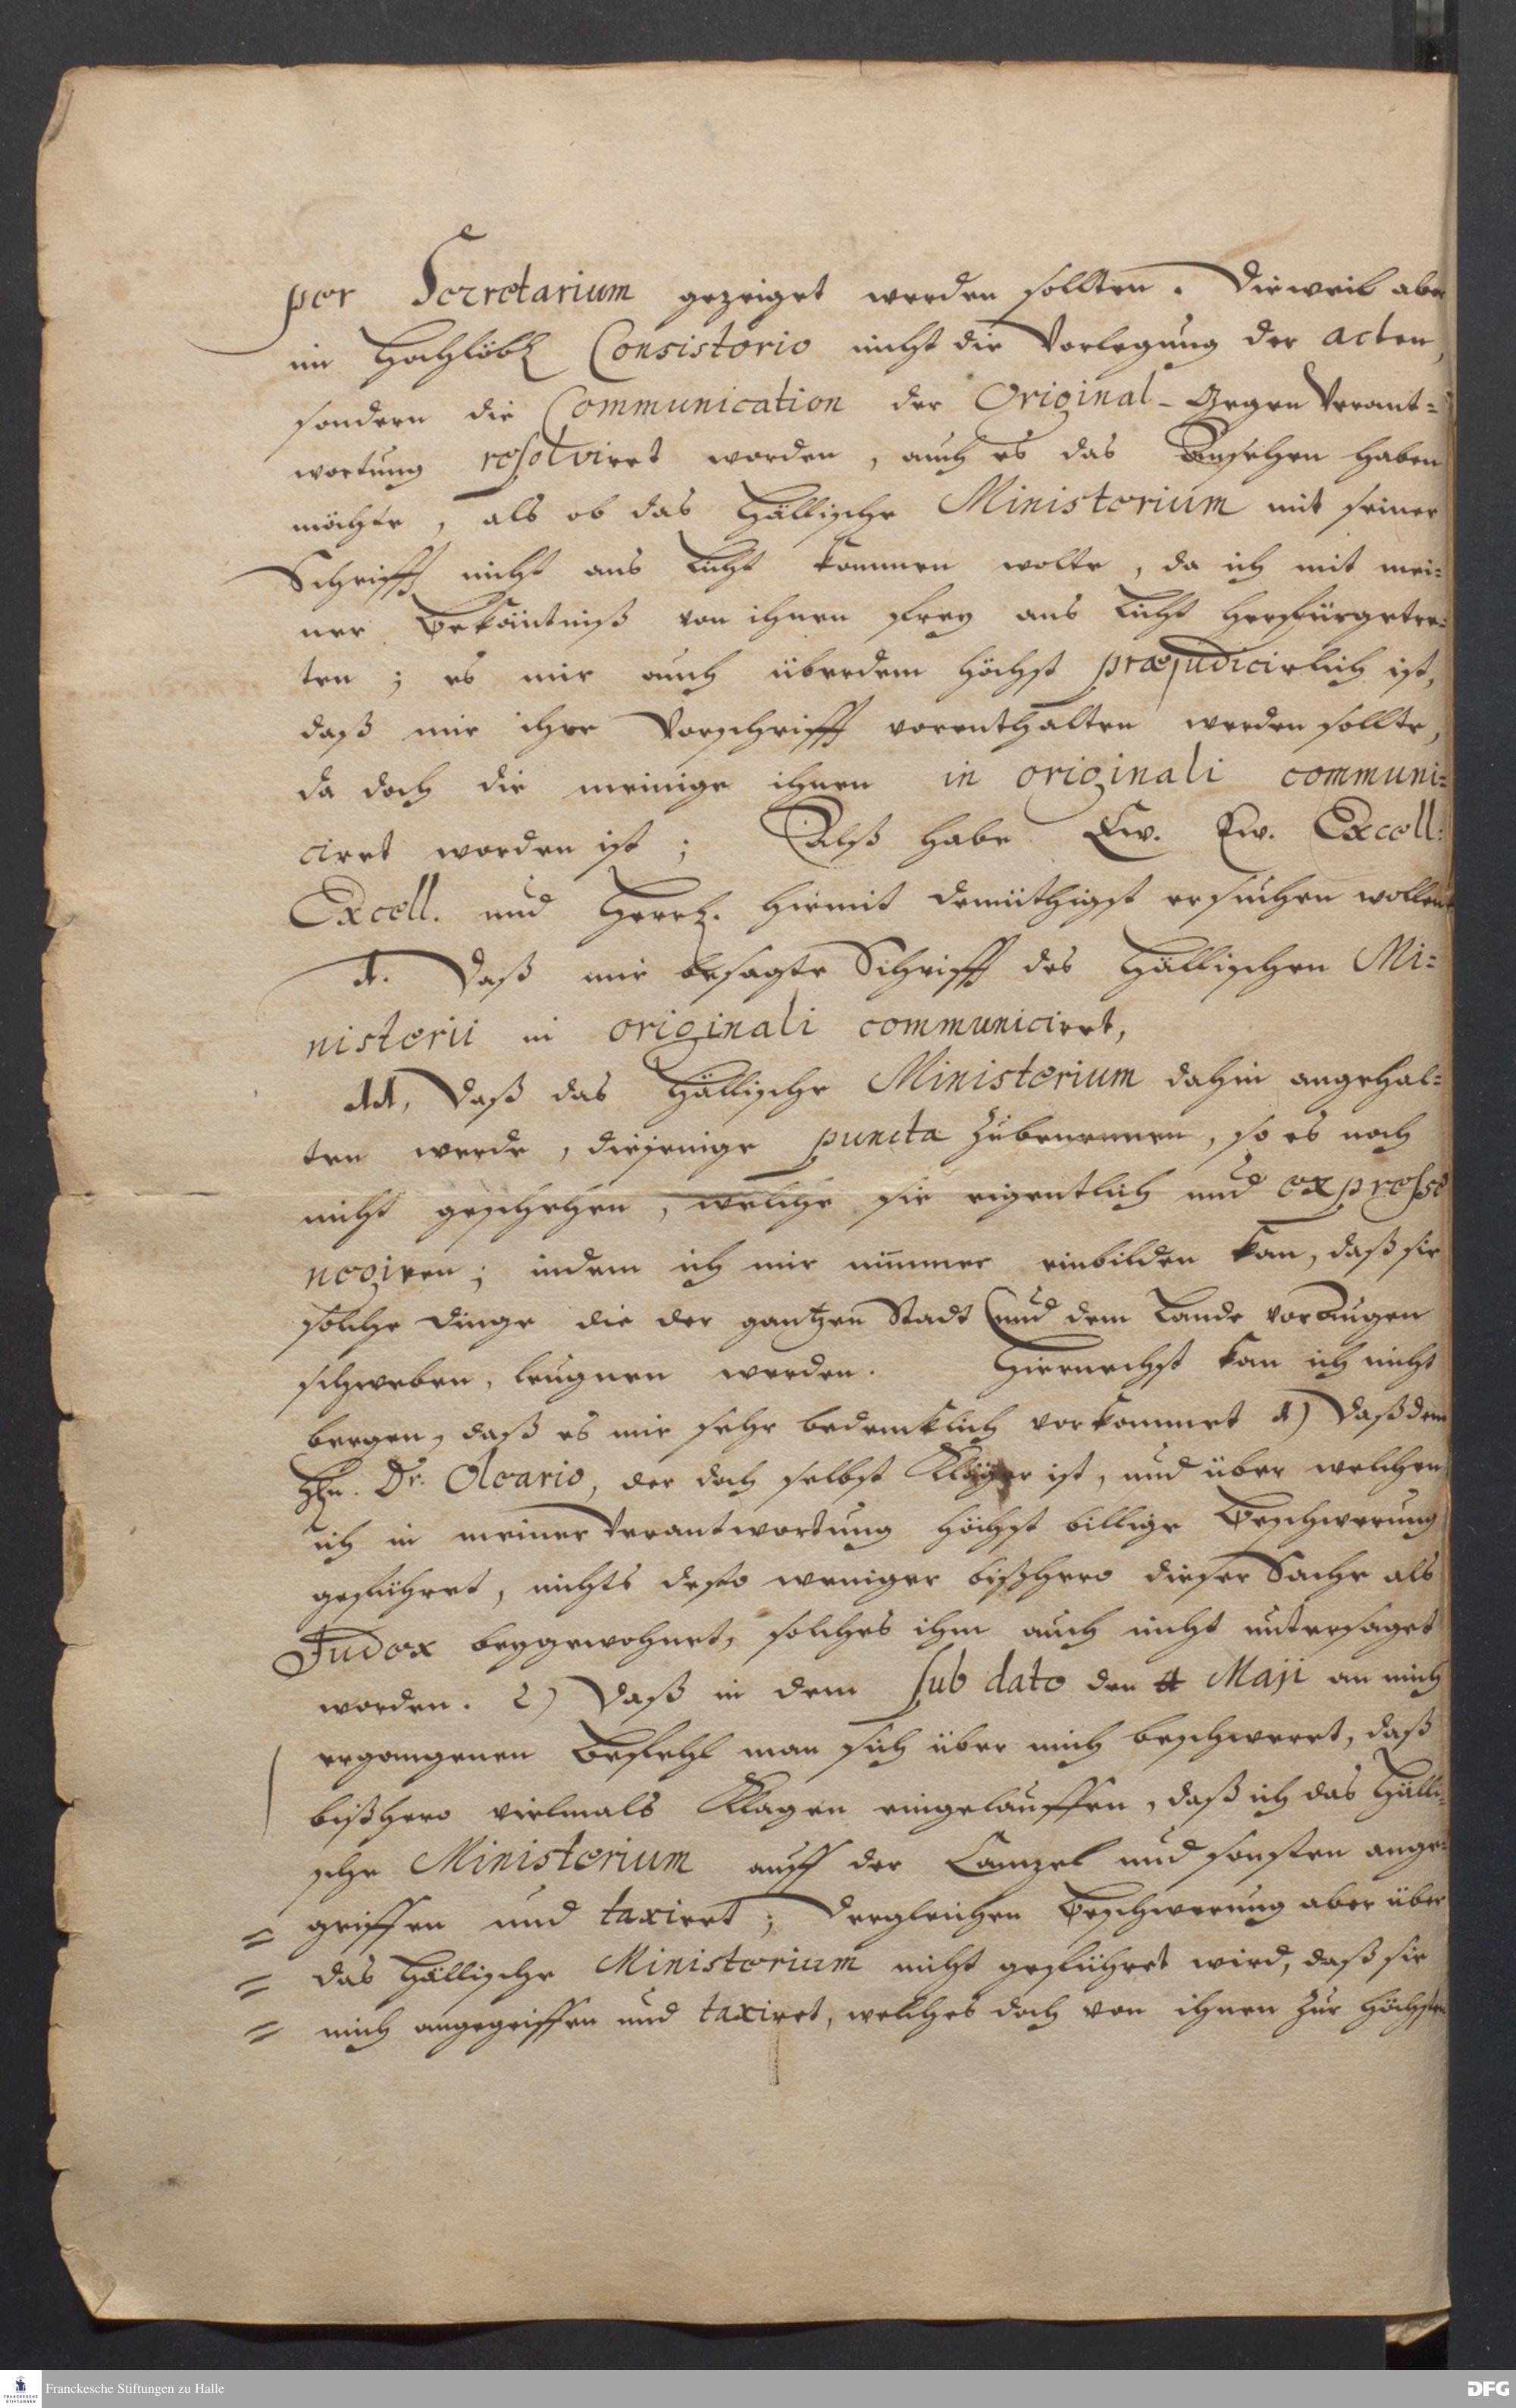 per Secretarium gezeiget werden sollten. Dieweil aber
im Hochlöbl Consistorio nicht die Vorlegung der acten,
sondern die Communication der Original-Gegen Verant=
wortung resolviret worden, auch es das Ansehen haben
möchte, als ob das Hällische Ministerium mit seiner
Schrifft nicht ans Licht kommen wolte, da ich mit mei=
ner Bekäntniß von ihnen frey ans Licht herfürgetre=
ten; es mir auch überdem höchst præjudicirlich ist,
daß mir ihre Vorschrifft vorenthalten werden sollte,
da doch die meinige ihnen in originali communi=
ciret worden ist; Alß habe Ew. Ew. Excell:
Excell. und Herrl. hiermit demüthigst ersuchen wollen
1. Daß mir besagte Schrifft des Hällischen Mi=
nisterii in originali communiciret,
11, Daß das Hällische Ministerium dahin angehal=
ten werde, diejenige puncta zubenennen, so es noch
nicht geschehen, welche sie eigentlich und expresse
negiren; indem ich mir nimmer einbilden kan, daß sie
solche Dinge die der gantzen Stadt und dem Lande vor Augen
schweben, leugnen werden. Hiernechst kan ich nicht
bergen, daß es mir sehr bedencklich vorkommet 1) Daß dem
Hn. Dr. Oleario, der doch selbst Kläger ist, und über welchen
ich in meiner Verantwortung höchst billige Beschwerung
geführet, nichts desto weniger bißhero dieser Sache als
Judex beygewohnet, solches ihm auch nicht untersaget
worden. 2) Daß in dem sub dato den 4 Maji an mich
ergangenen Befehl man sich über mich beschweret, daß
bißhero vielmals Klagen eingelauffen, daß ich das Hälli=
sche Ministerium auff der Cantzel und sonsten ange=
griffen und taxiret; dergleichen Beschwerung aber über
das Hällische Ministerium nicht geführet wird, daß sie
mich angegriffen und taxiret, welches doch von ihnen zur höchsten
Franckesche Stiftungen zu Halle
DFG